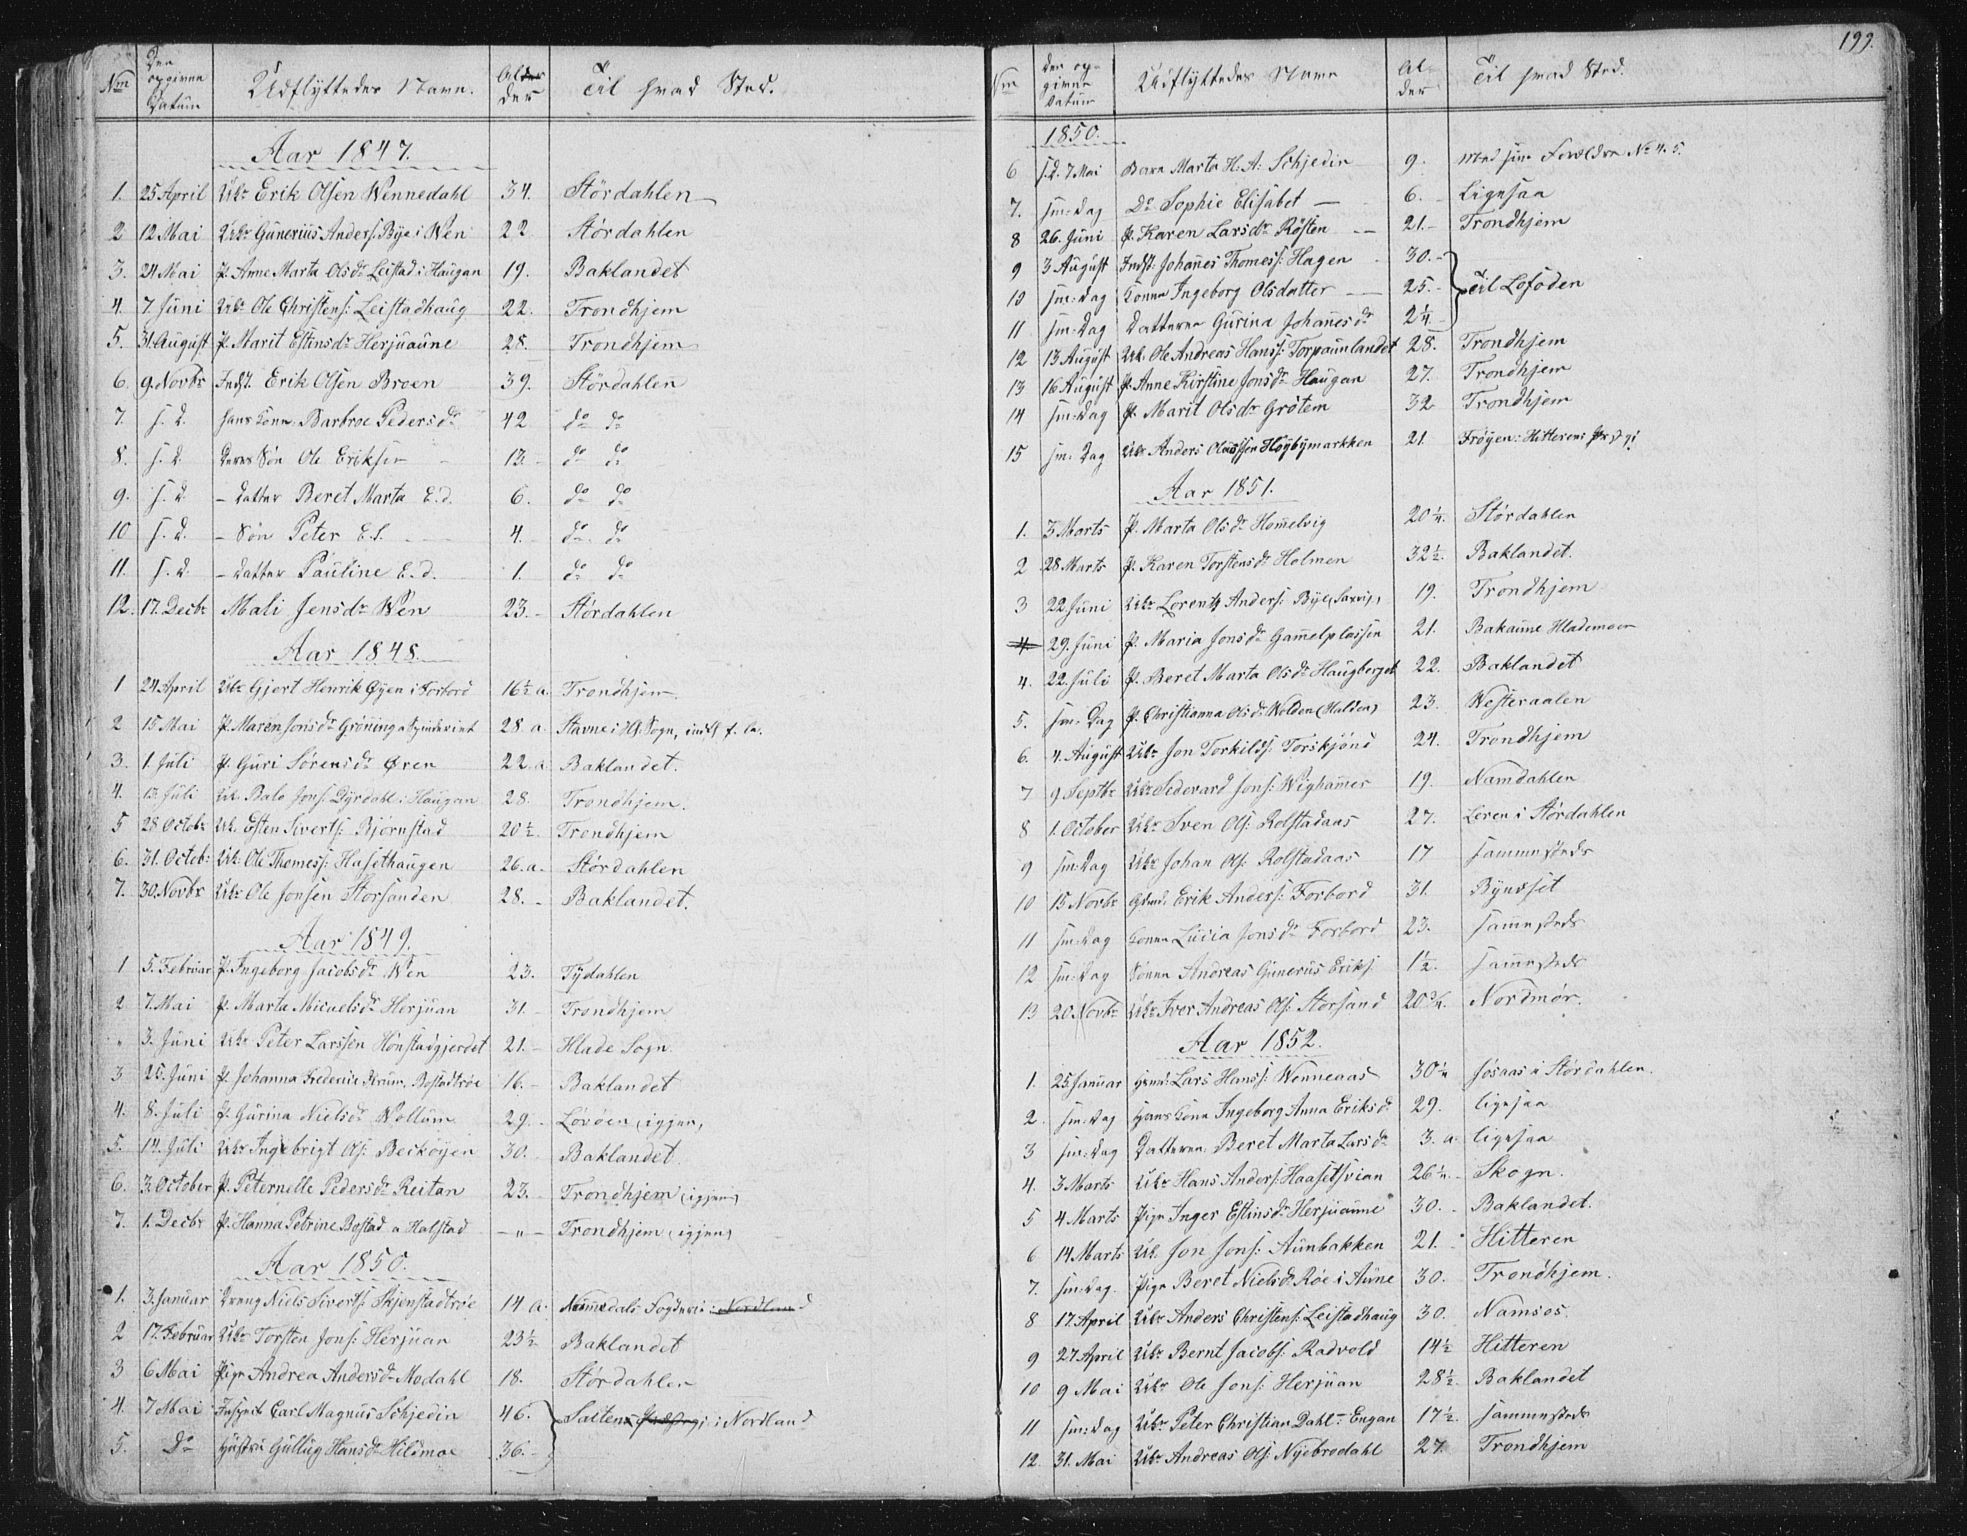 Nm Den opgivne Datum Udflyttedes Navn. Alder Til hvad Sted.
Aar 1847.
1. 25 April Uk: Erik Olsen Wennedahl 34. Stördahlen
2 12 Mai Uk: Gunerius Anders: Bye i Wen 22 Størdahlen
3. 24 Mai P. Anne Marta Olsdr Leistad i Haugan 19. Baklandet
4. 7 Juni Uk: Ole Christens: Leistadhaug 22. Trondhjem
5. 31. August P. Marit Estinsdr Herjuaune 28. Trondhjem
6. 9. Novbr Indst. Erik Olsen Broen 39. Stördahlen
7. s. D. hans Kone Barbroe Pedersdr 42 do do
8. s. D. Deres Søn Ole Eriksen 13. do do
9. s. D. – Datter Beret Marta E.d. 6. do do
10 s. D. – Søn Peter E.s. 4. do do
11. s. D. – Datter Pauline E.d. 1. do do
12. 17. Decbr Mali Jensdr Wen 23. Størdahlen
Aar 1848.
1 24 April Uk: Gjert Henrik Øyen i Forbord 16½ a. Trondhjem.
2 15 Mai P. Maren Jonsdr Gröning a 28 a. Stavne i Sogn,
3. 1. Juli P. Guri Sørensdr Øren 22. a Baklandet.
4. 13. Juli Uk. Balo Jons: Dyrdahl i Haugan 28. Trondhjem.
5 28 Octobr Uk. Esten Siverts: Bjørnstad 20½. Trondhjem
6. 31. Octob: Uk: Ole Thomess: Hasethaugen 26. a. Stördahlen
7. 30. Novbr Uk: Ole Jonsen Storsanden 28. – Baklandet.
Aar 1849.
1 5. Februar P. Ingeborg Jacobsdr Wen 23. Tydahlen
2 7. Mai P. Marta Micaelsdr Herjuan 31. Trondhjem
" 3. Juni Uk: Peter Larssen Hönstadgjerdet 21. – Hlade Sogn.
3 25. Juni P. Johanna Frederic Krum, Bostadtrøe 16. – Baklandet
4. 8. Juli P. Gurina Nielsdr Wollum 29. Lövöen (igjen)
5. 14. Juli Uk: Ingebrigt Ols: Beckøyen 30. Baklandet.
6. 3. October P. Peternelle Pedersdr Reitan 23. Trondhjem (igjen)
7. 1. Decbr P. Hanna Petrine Bostad a Halstad – " – Trondhjem (igjen)
Aar 1850.
1. 3. Januar Dreng Niels Siverts: Skjenstadtrøe 14. a. Namdals Fogderie i Nordland
2 17. Februar Uk: Torsten Jons: Herjuan 23½ Baklandet
3 6 Mai Pige Andrea Andersdr Modahl 18. Stördahlen
4. 7 Mai Carl Magnus Schjedin 46. Salten i Nordland
5. Do Hustru Gullug Hansdr Hildmoe 36.
199.
Nm Den opgivne Datum Udflyttedes Navn Alder Til hvad Sted.
1850.
6 s.d. 7 Mai Barn Marta H. A. Schjedin 9. Med sine Forældre No 4. 5.
7. sm: Dag Do Sophie Elisabet – 6. – Ligesaa
8 26. Juni P. Karen Larsdr Røsten 21. – Trondhjem
9 3. August Indst. Johanes Thomess: Hagen 30. –
10 sm: Dag Konen Ingeborg Olsdatter 25. – til Lofoden
11 sm: Dag Datteren Gurina Johanesdr 2¼
12 13 August Uk. Ole Andreas Hanss: Torpaunlandet 28. Trondhjem
13 16 August P. Anne Kirstine Jonsdr Haugan 27. Trondhjem
14 sm: Dag P. Marit Olsdr Grötem 32 Trondhjem
15 sm: Dag Uk: Anders Olaussen Högbymarkken 21. Fröyen: Hitterens
Aar 1851.
1. 3. Marts P. Marta Olsdr Homelvig 20¼. Størdahlen
2 28 Marts P. Karen Torstensdr Holmen 32½. Baklandet.
3 22. Juni Uk: Lorentz Anders: Bye (Saxvig) 19. Trondhjem
4. 29. Juni P. Maria Jonsdr Gamelplassen 21. Bakaune Hlademoen
4. 22. Juli P. Beret Marta Olsdr Haugberget 22. Baklandet
5. sm: Dag P. Christianna Olsdr Wolden (Halden) 23. Westeraalen
6. 4. August Uk: Jon Torkilds: Torskjönd 24. Trondhjem
7 9 Septbr Uk: Sedevard Jons: Wighames 19. Namdahlen
8 1. October Uk: Sven Ols: Rolstadaas 27. Leren i Størdahlen
9 sm: Dag Uk: Johan Ols: Rolstadaas 17 sammesteds
10 15 Novbr Gdmd. Erik Anders: Forbord 31. Bynæset
11 sm: Dag Konen Lucia Jonsdr Forbord 23. sammesteds
12 sm: Dag Sønnen Andreas Gunerus Eriks. 1½. sammesteds
13 20. Novbr Uk: Iver Andreas Ols: Storsand 20¾. Nordmör.
Aar 1852.
1. 25. Januar Lars Hanss: Wenneaas 30¼ Josaas i Størdahlen.
2. sm: Dag Hans Kone Ingeborg Anna Eriksdr 29. ligesaa
3 sm: Dag Datteren Beret Marta Larsdr 3. a. ligesaa
4. 3 Marts Uk: Hans Anders: Haasetsvian 26¼. – Skogn.
5 4 Marts Pige Inger Estinsdr Herjuaune 30. – Baklandet.
6 14 Marts Uk. Jon Jons: Aunbakken 21. Hitteren
7. sm: Dag. Pige Beret Nielsdr Røe i Aune 30. Trondhjem.
8 17. April Uk: Anders Christens: Leistadhaug 30. Namsos.
9 27 April Uk: Bernt Jacobs: Radvold 14½ Hitteren
10 9 Mai Uk: Ole Jons: Herjuan 28½. Baklandet
11 sm: Dag Uk: Peter Christian Dahl: Engan 17½. sammesteds
12. 31. Mai Uk: Andreas Ols: Nyebrodahl 27. Trondhjem